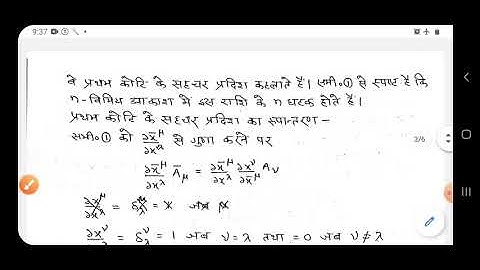 9:37
वे प्रथम कोटि के सहचर प्रदिश कहलाते हैं। समी॰① से स्पष्ट है कि
n-विमीय आकाश में इस राशि के n घटक होते हैं।
प्रथम कोटि के सहचर प्रदिश का रूपान्तरण-
समी॰① को ∂x̄^μ/∂x^λ से गुणा करने पर
2/6
∂x̄^μ/∂x^λ Ā_μ = ∂x̄^μ/∂x^λ ∂x^ν/∂x̄^μ A_ν
∂x^ν/∂x^λ = δ^ν_λ = 1 जब ν=λ तथा =0 जब ν≠λ